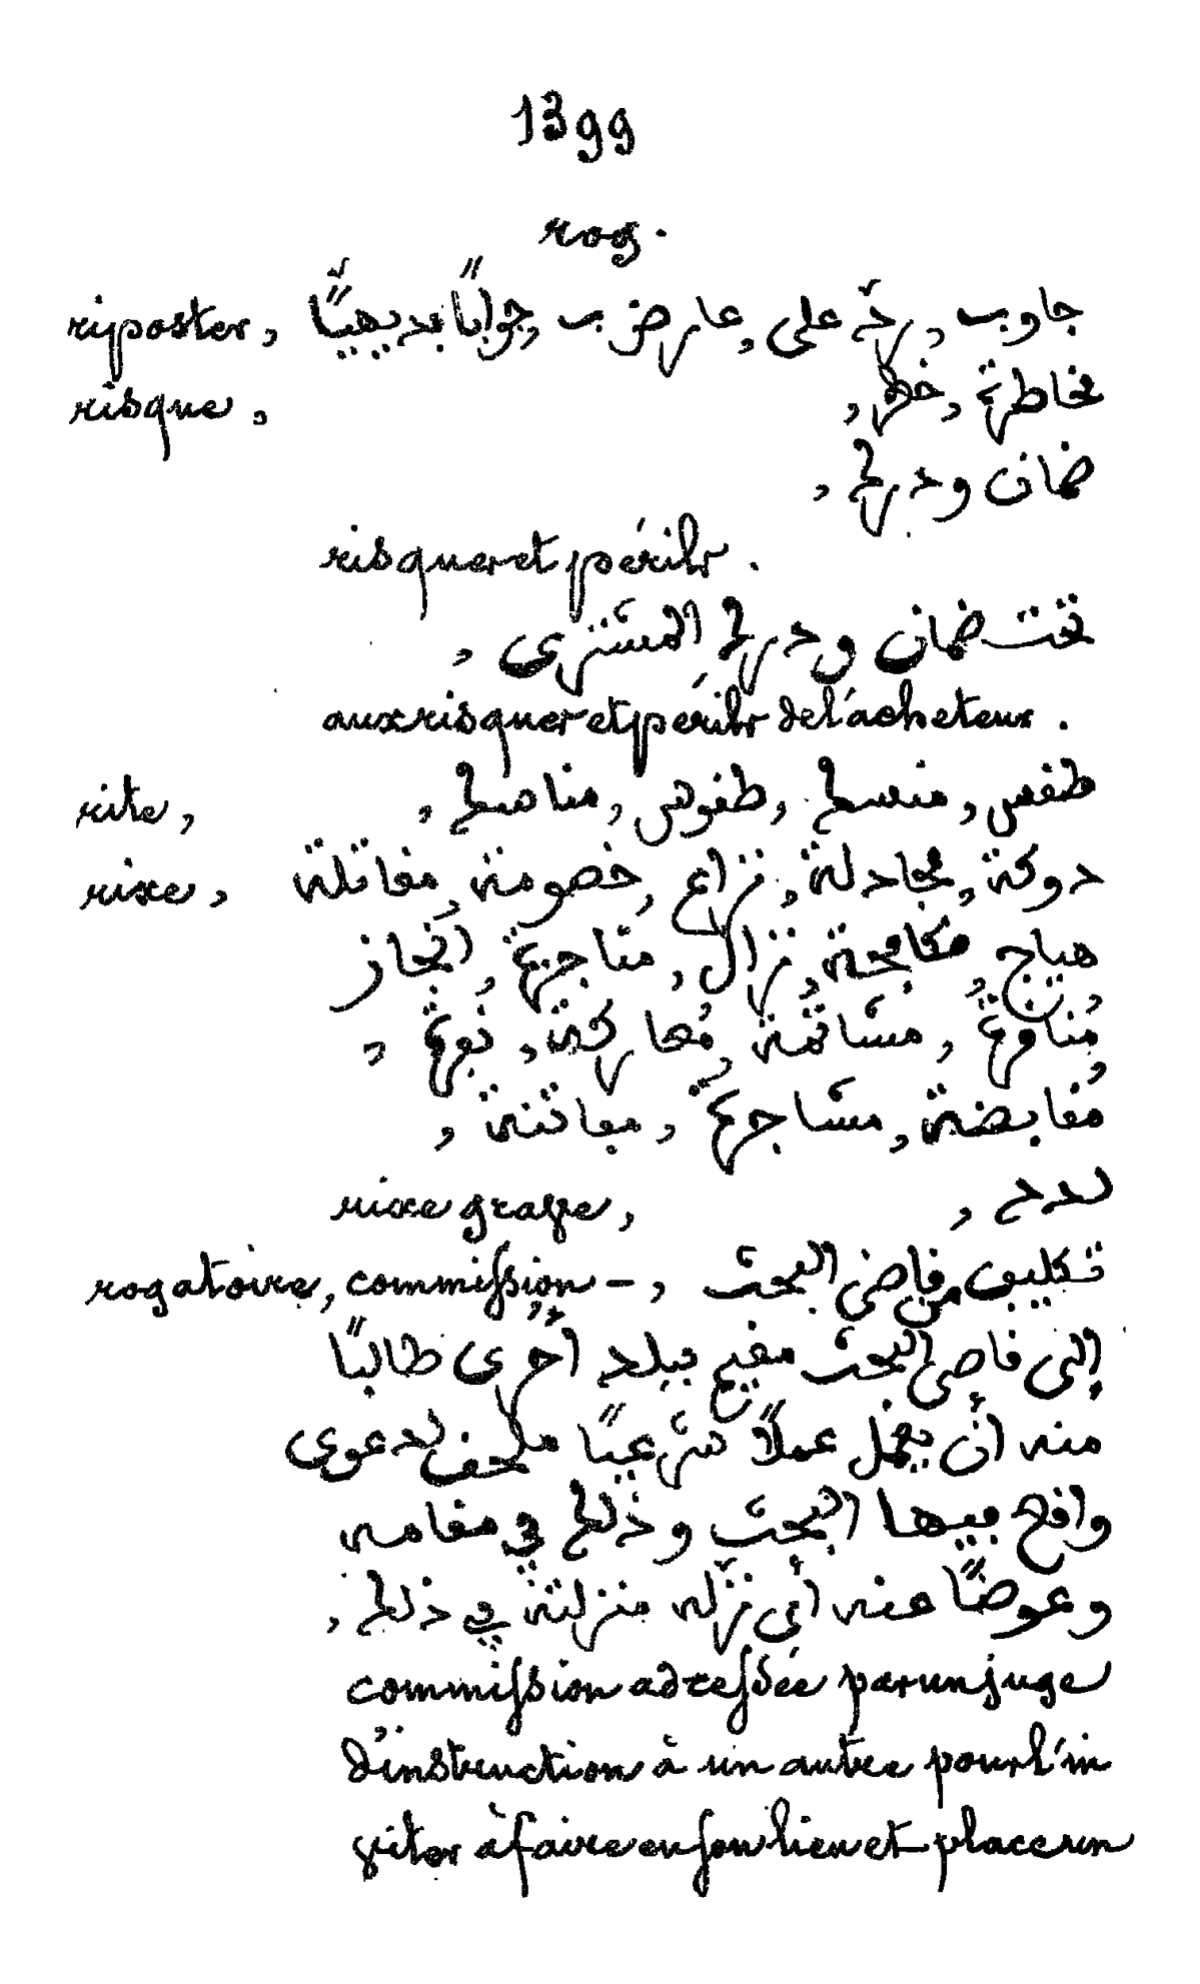 1399
rog.
riposter, جاوب, ردّ على, عارض ب, جوابًا بديهيًّا
risque, مخاطرة, خطر,
ضمان ودرك,
risques et périls.
تحت ضمان ودرك المشترى,
aux risques et périls de l'acheteur.
rite, طقس, منسك, طقوس, مناسك,
rixe, دوكة, مجادلة, نزاع, خصومة, مقاتلة
هياج, مكافحة, نزال, مناجرة, انجاز
مُنافرةً, مشاتمة, مُعاركة, نُعرة,
مُقابضة, مشاجرةً, مفاتنة,
rixe grave, لدد,
rogatoire, commission –, تكليف من قاضى البحث
إلى قاضى البحث مقيم ببلد أخرى طالبًا
منه أن يعمل عملًا شرعيًّا ملحق لدعوى
واقع فيها البحث وذلك في مقامه
وعوضًا عنه أى نزّله منزلته في ذلك,
commission adressée par un juge
d'instruction à un autre pour l'in
viter à faire en son lieu et place un